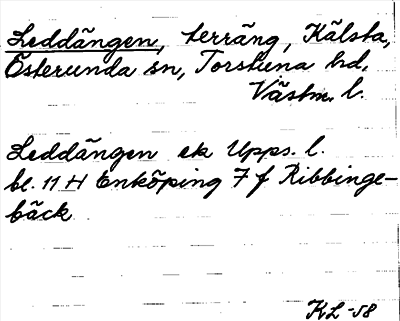 Leddängen, terräng, Kälsta,
Österunda sn, Torstuna hd,
Västm. l.
Leddängen ek Upps. l.
bl. 11 H Enköping 7 f Ribbinge-
bäck
KL -58